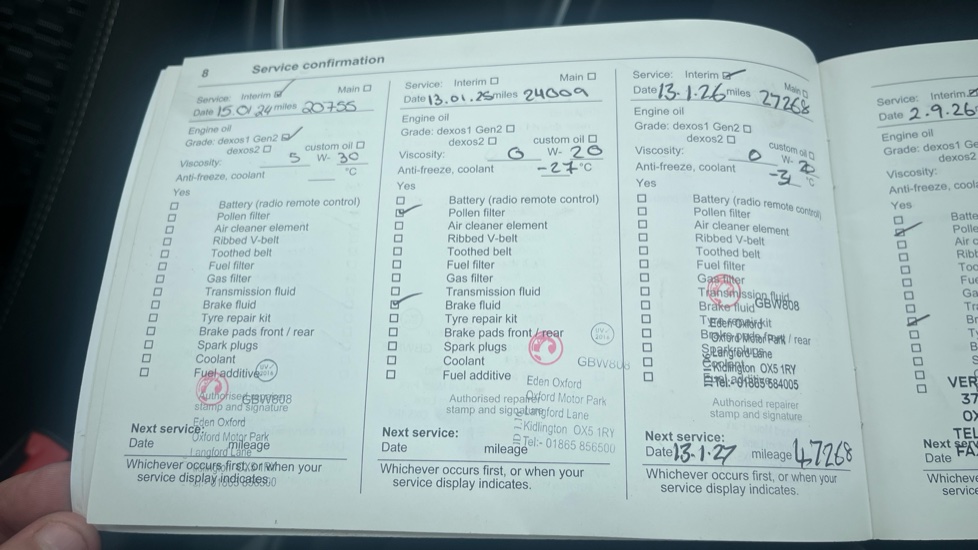 8 Service confirmation
Service: Interim Main
Date 15.01.24 miles 20755
Engine oil
Grade: dexos1 Gen2
dexos2 custom oil
Viscosity: 5 W- 30
Anti-freeze, coolant °C
Yes
Battery (radio remote control)
Pollen filter
Air cleaner element
Ribbed V-belt
Toothed belt
Fuel filter
Gas filter
Transmission fluid
Brake fluid
Tyre repair kit
Brake pads front / rear
Spark plugs
Coolant
Fuel additive
GBW808
Authorised repairer
stamp and signature
Eden Oxford
Oxford Motor Park
Langford Lane
Next service:
Date mileage
Whichever occurs first, or when your
service display indicates.
Service: Interim Main
Date 13.01.25 miles 24009
Engine oil
Grade: dexos1 Gen2
dexos2 custom oil
Viscosity: 0 W- 20
Anti-freeze, coolant -27 °C
Yes
Battery (radio remote control)
Pollen filter
Air cleaner element
Ribbed V-belt
Toothed belt
Fuel filter
Gas filter
Transmission fluid
Brake fluid
Tyre repair kit
Brake pads front / rear
Spark plugs
Coolant
Fuel additive
GBW808
Authorised repairer
stamp and signature
Eden Oxford
Oxford Motor Park
Langford Lane
Kidlington OX5 1RY
Tel:- 01865 856500
Next service:
Date mileage
Whichever occurs first, or when your
service display indicates.
Service: Interim Main
Date 13.1.26 miles 27268
Engine oil
Grade: dexos1 Gen2
dexos2 custom oil
Viscosity: 0 W- 20
Anti-freeze, coolant -31 °C
Yes
Battery (radio remote control)
Pollen filter
Air cleaner element
Ribbed V-belt
Toothed belt
Fuel filter
Gas filter
Transmission fluid
Brake fluid
GBW808
Tyre repair kit
Eden Oxford
Brake pads front / rear
Oxford Motor Park
Spark plugs
Langford Lane
Coolant
Kidlington OX5 1RY
Fuel additive
Authorised repairer
stamp and signature
Next service:
Date 13.1.27 mileage 47268
Whichever occurs first, or when your
service display indicates.
Service: Interim
Date 2.9.26
Engine oil
Grade: dexos1 Ge
dexos2
Viscosity:
Anti-freeze, coolant
Yes
Batte
Polle
Air c
Ribb
Too
Fue
Ga
Tra
Br
T
B
S
VER
37
TEL
FA
Next serv
Date
Whicheve
service